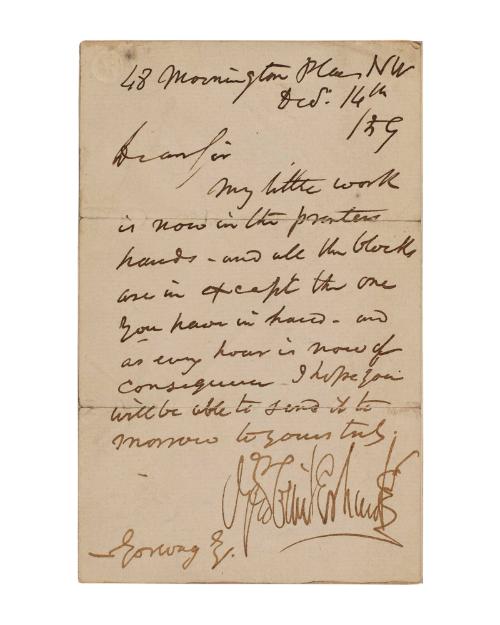 48 Mornington Place NW
Decr. 14th
/59
Dear Sir
My little work
is now in the printers
hands - and all the blocks
are in except the one
you have in hand - and
as every hour is now of
consequence I hope you
will be able to send it to
morrow to yours truly